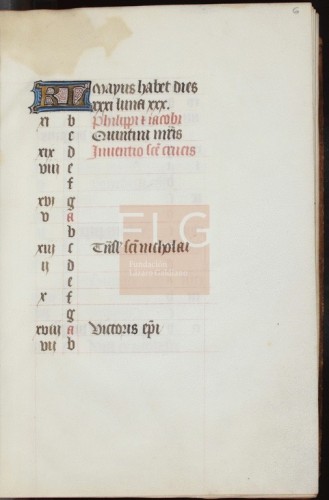 6
KL Mayus habet dies
xxxi luna xxx.
xi b Philippi t iacobi
c Quintini mris
xix d Inventio sce crucis
viii e
f
xvi g
v a
b
xiii c Tnsl sci nicholai
ii d
e
x f
g
xviii a Victoris epi
vii b
FLG
Fundación
Lázaro Galdiano